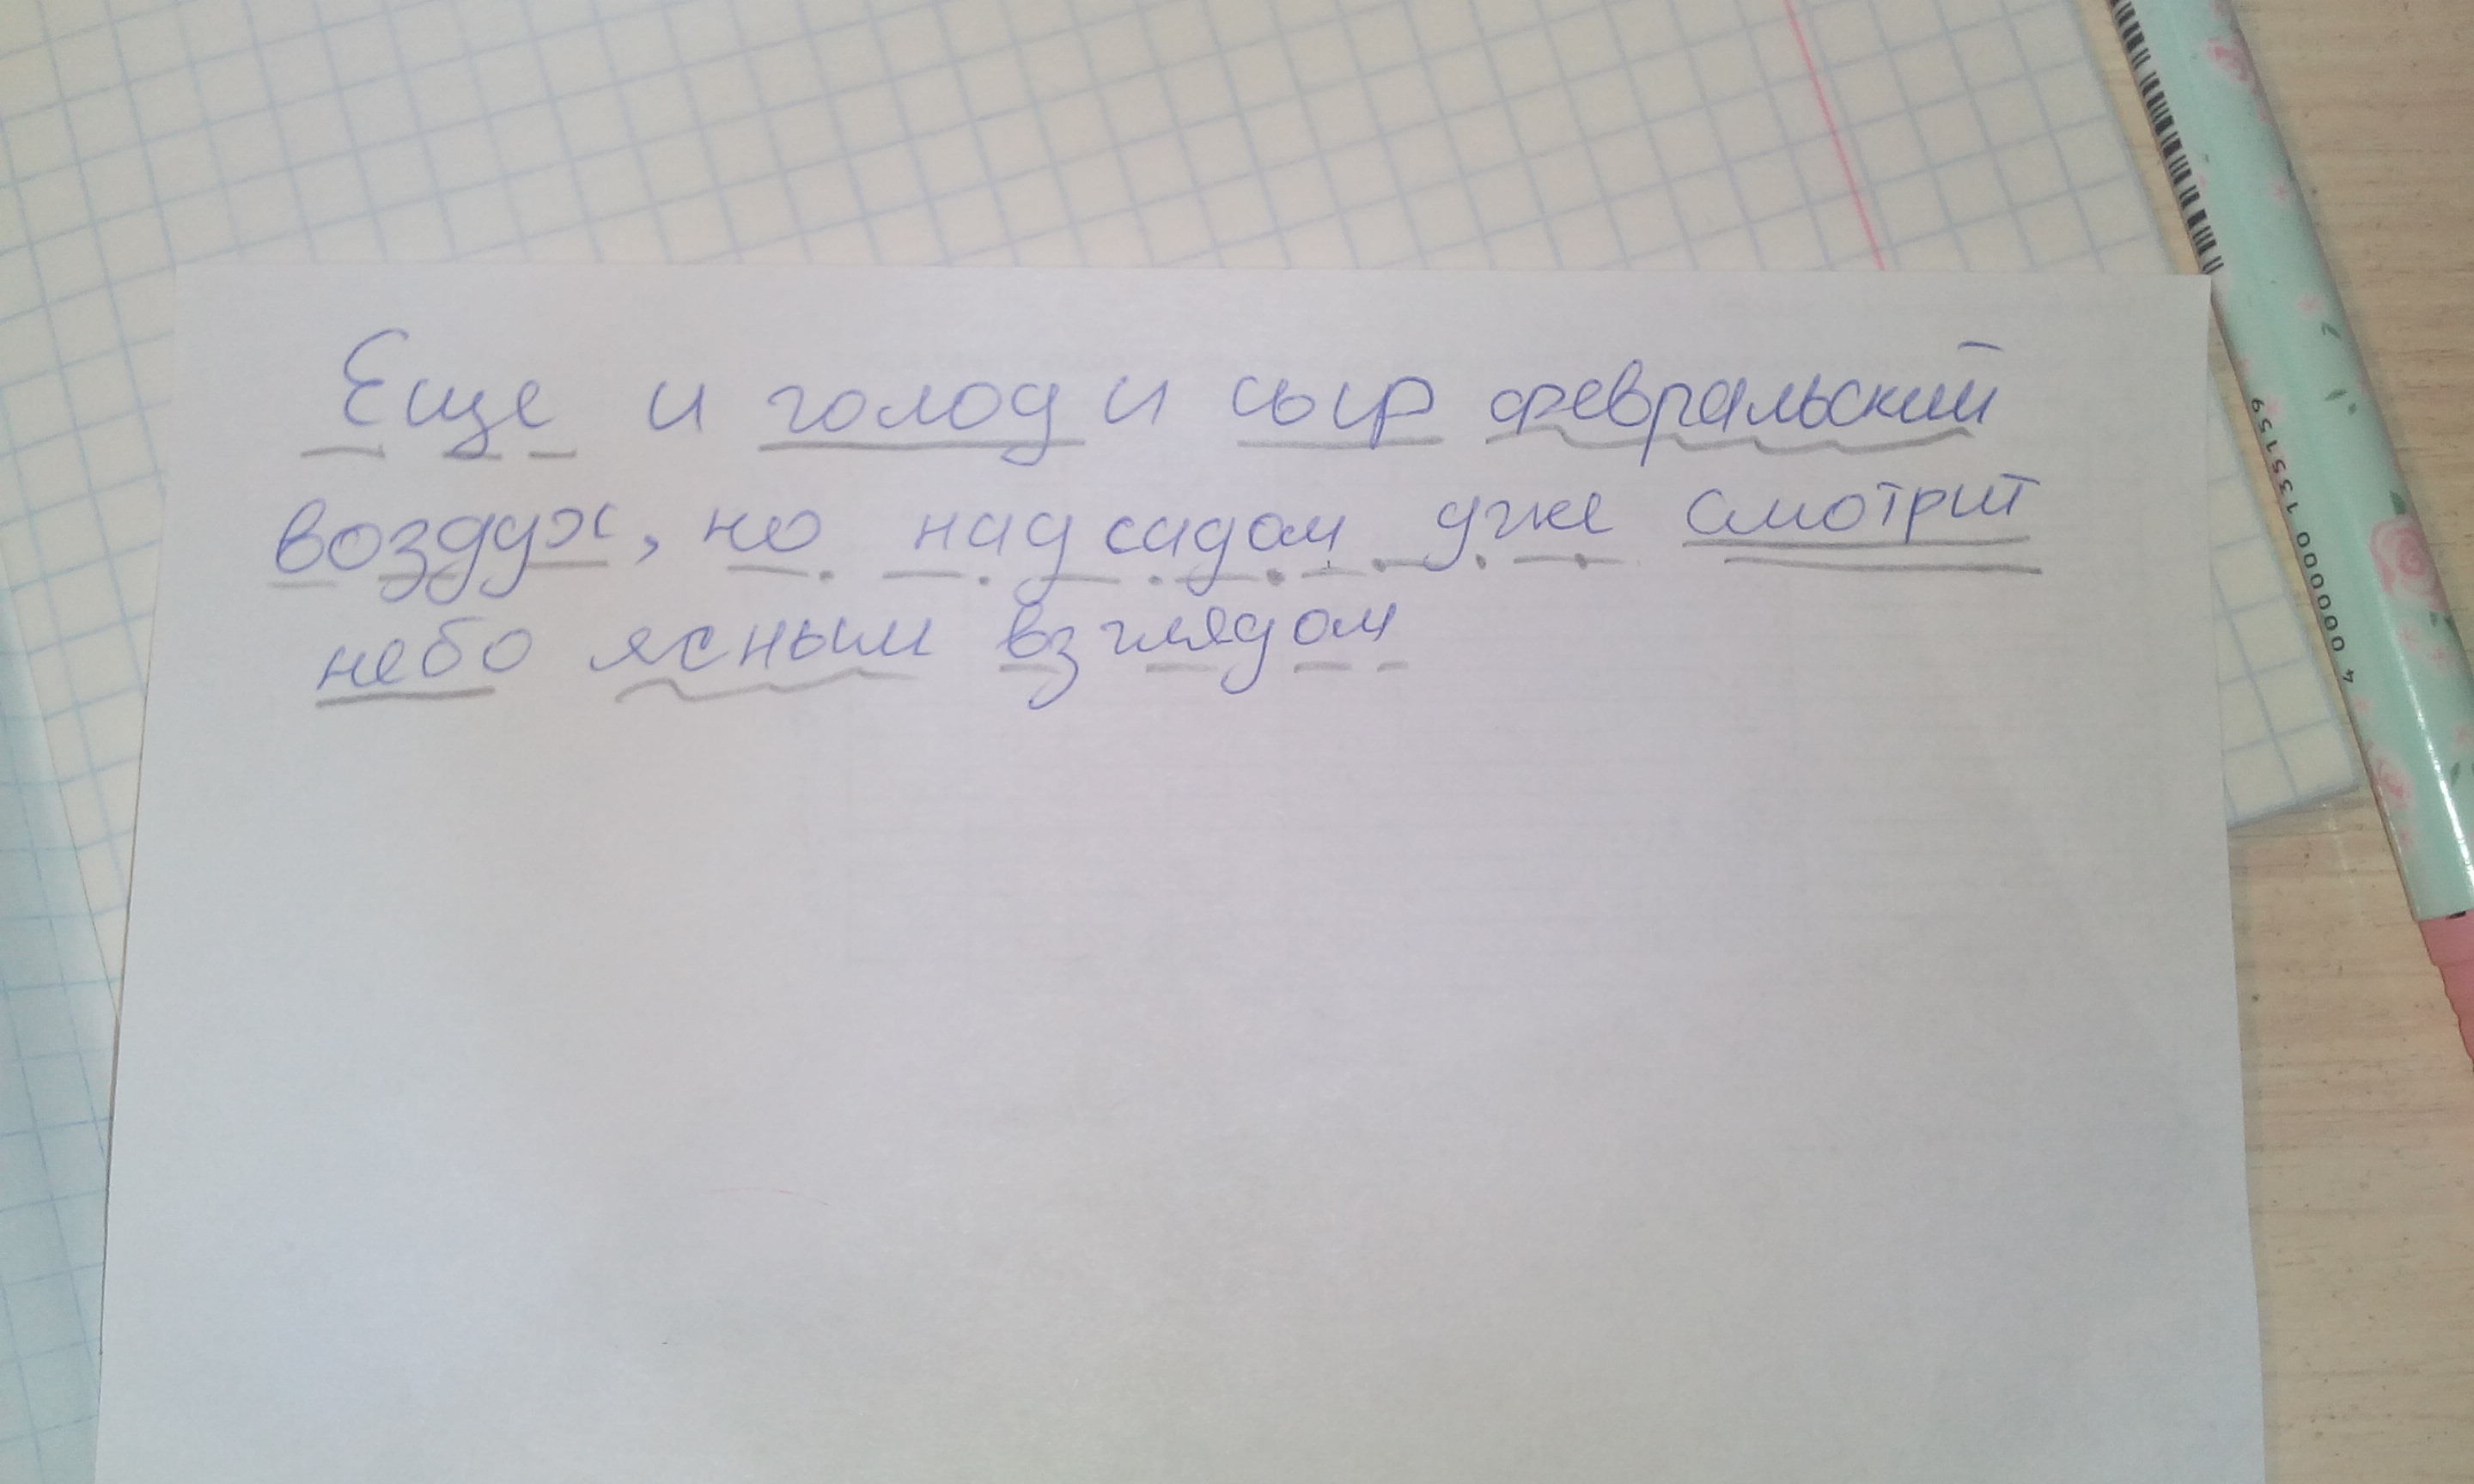 Еще и голод и сыр февральский
воздух, но над садом уже смотрит
небо ясным взглядом
4 00000 135159